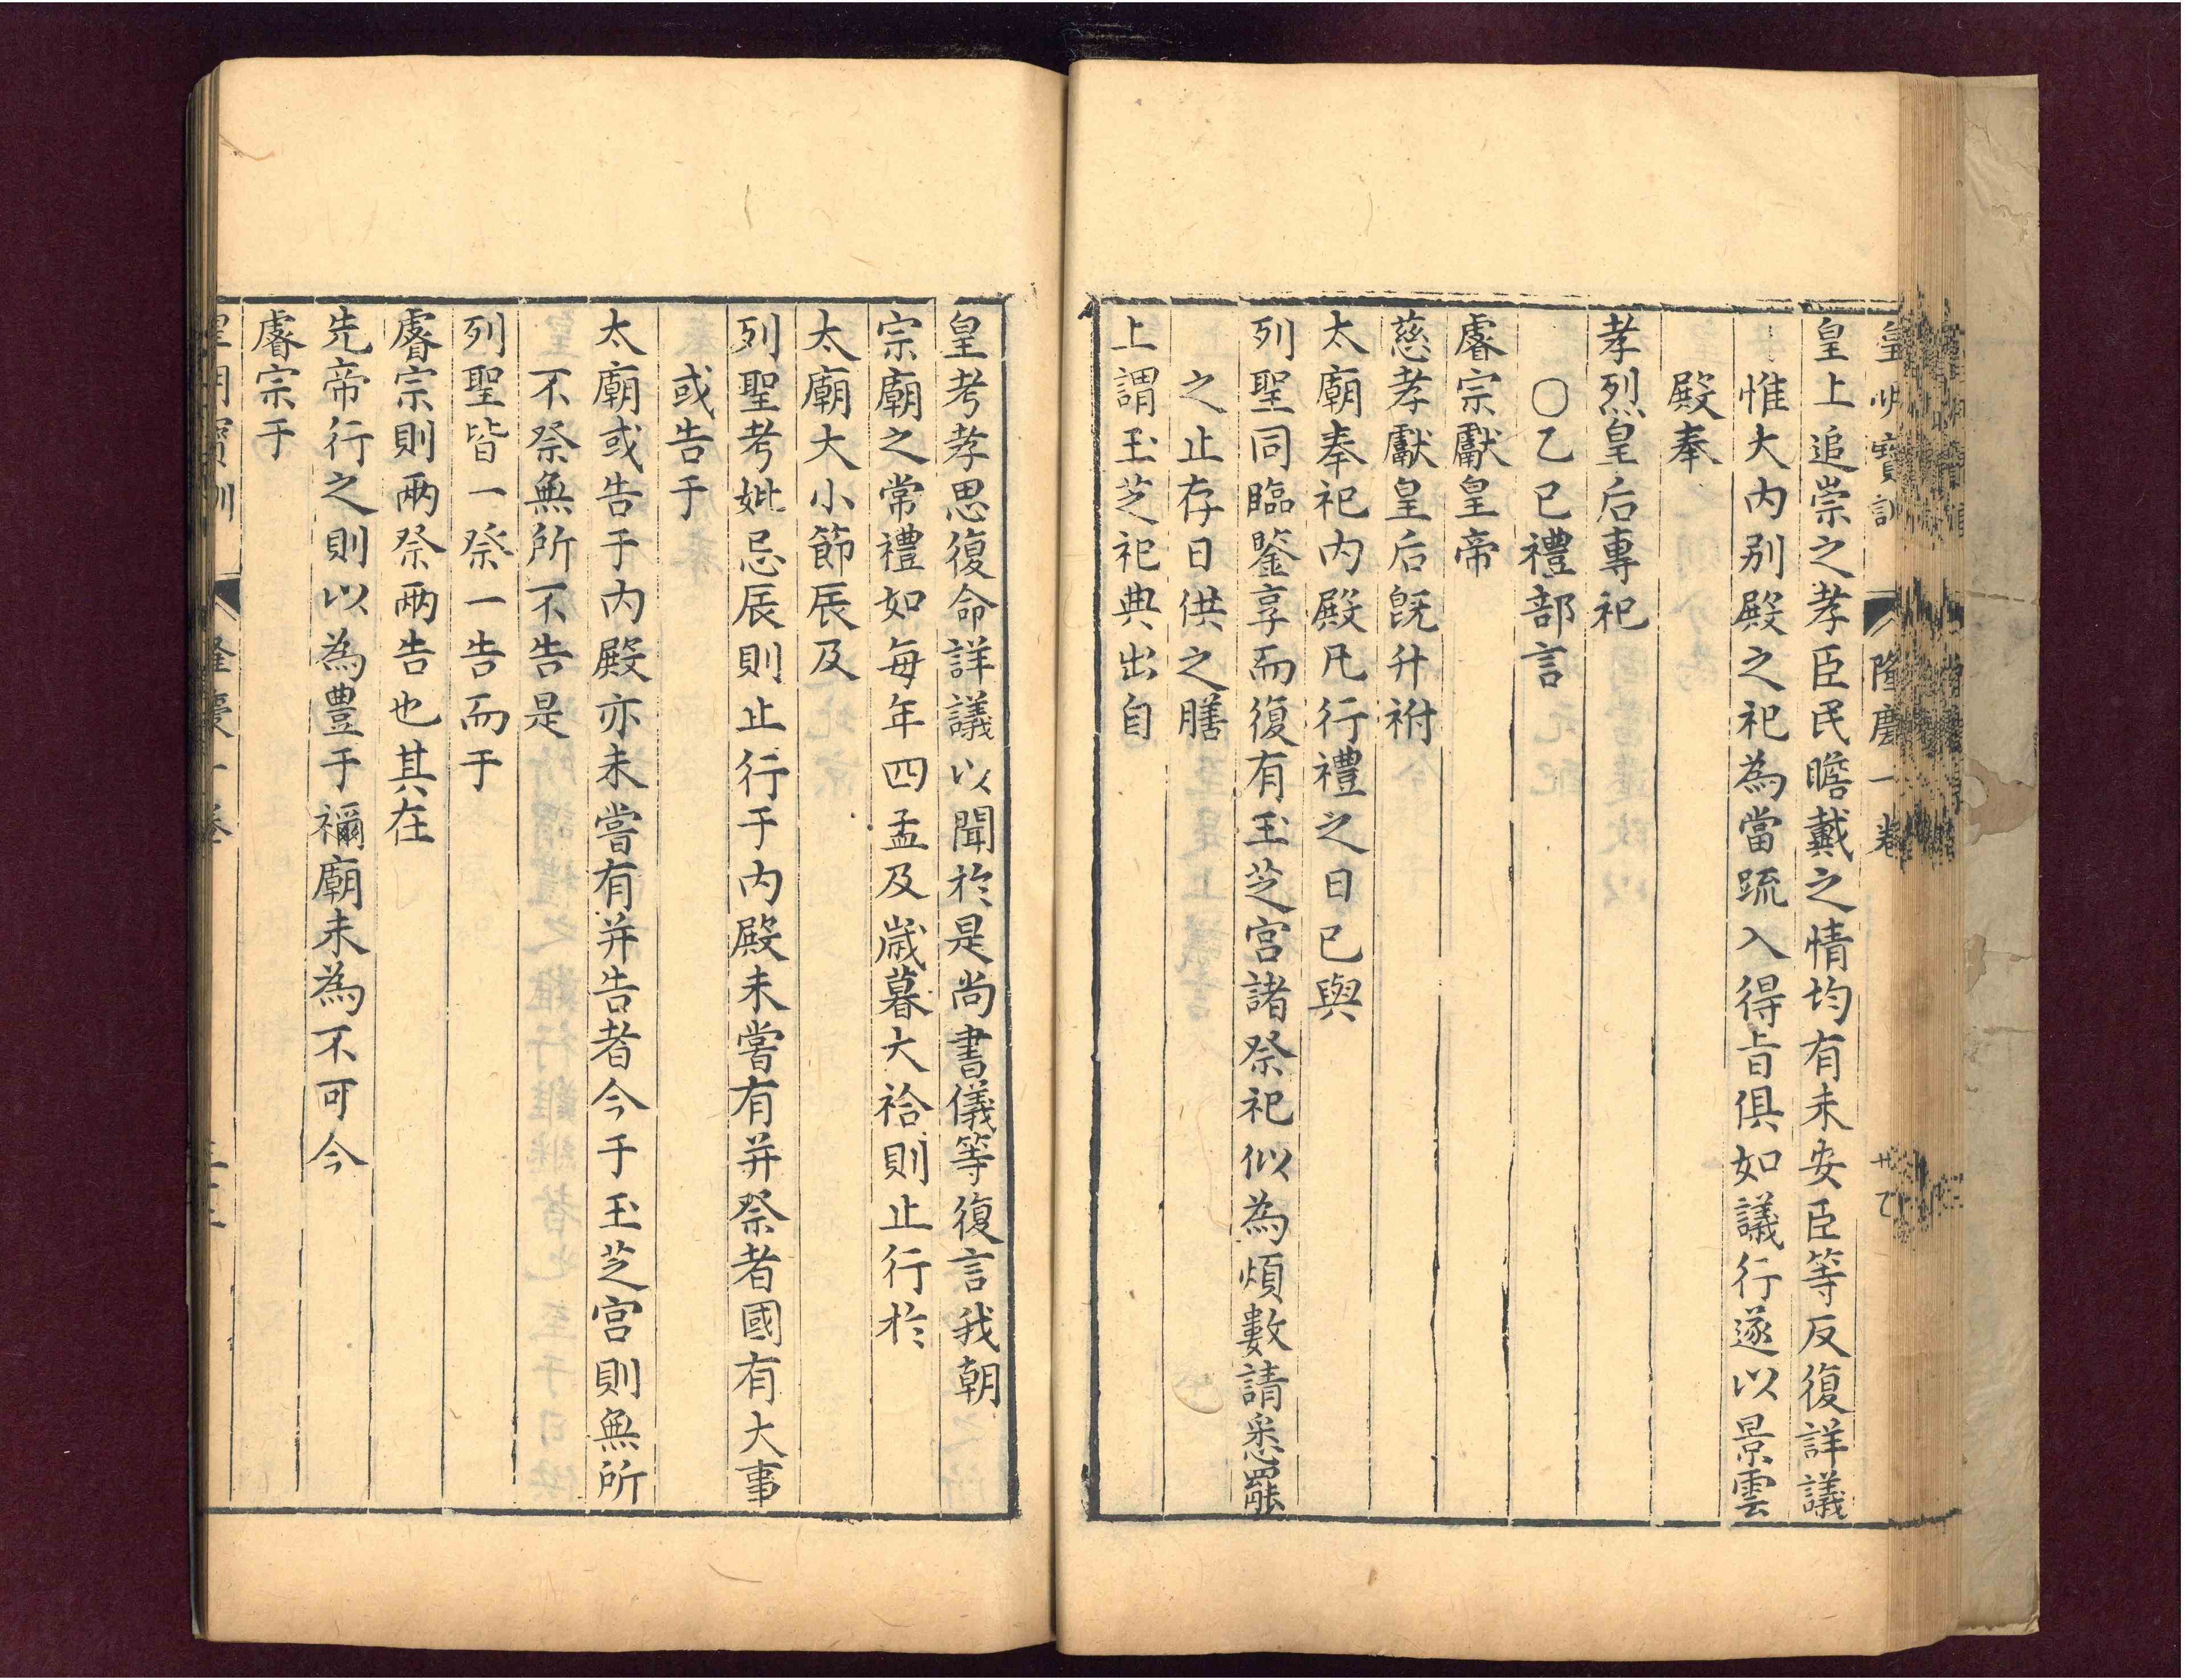 皇明寶訓 隆慶一卷 廿一
皇上追崇之孝臣民瞻戴之情均有未安臣等反復詳議
惟大內別殿之祀為當疏入得旨俱如議行遂以景雲
殿奉
孝烈皇后專祀
○乙巳禮部言
睿宗獻皇帝
慈孝獻皇后旣升祔
太廟奉祀內殿凡行禮之日已與
列聖同臨鑒享而復有玉芝宮諸祭祀似為煩數請悉罷
之止存日供之膳
上謂玉芝祀典出自
皇考孝思復命詳議以聞於是尚書儀等復言我朝
宗廟之常禮如每年四孟及歲暮大祫則止行於
太廟大小節辰及
列聖考妣忌辰則止行于內殿未嘗有并祭者國有大事
或告于
太廟或告于內殿亦未嘗有并告者今于玉芝宮則無所
不祭無所不告是
列聖皆一祭一告而于
睿宗則兩祭兩告也其在
先帝行之則以為豊于禰廟未為不可今
睿宗于
皇明寶訓 隆慶一卷